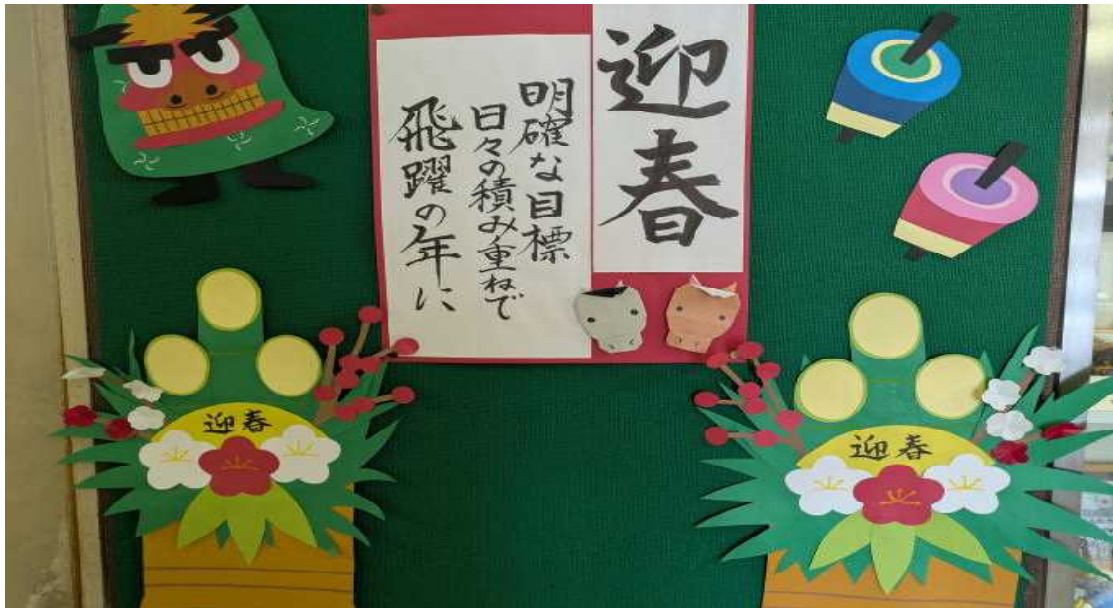 迎春
明確な目標
日々の積み重ねで
飛躍の年に
迎春
迎春